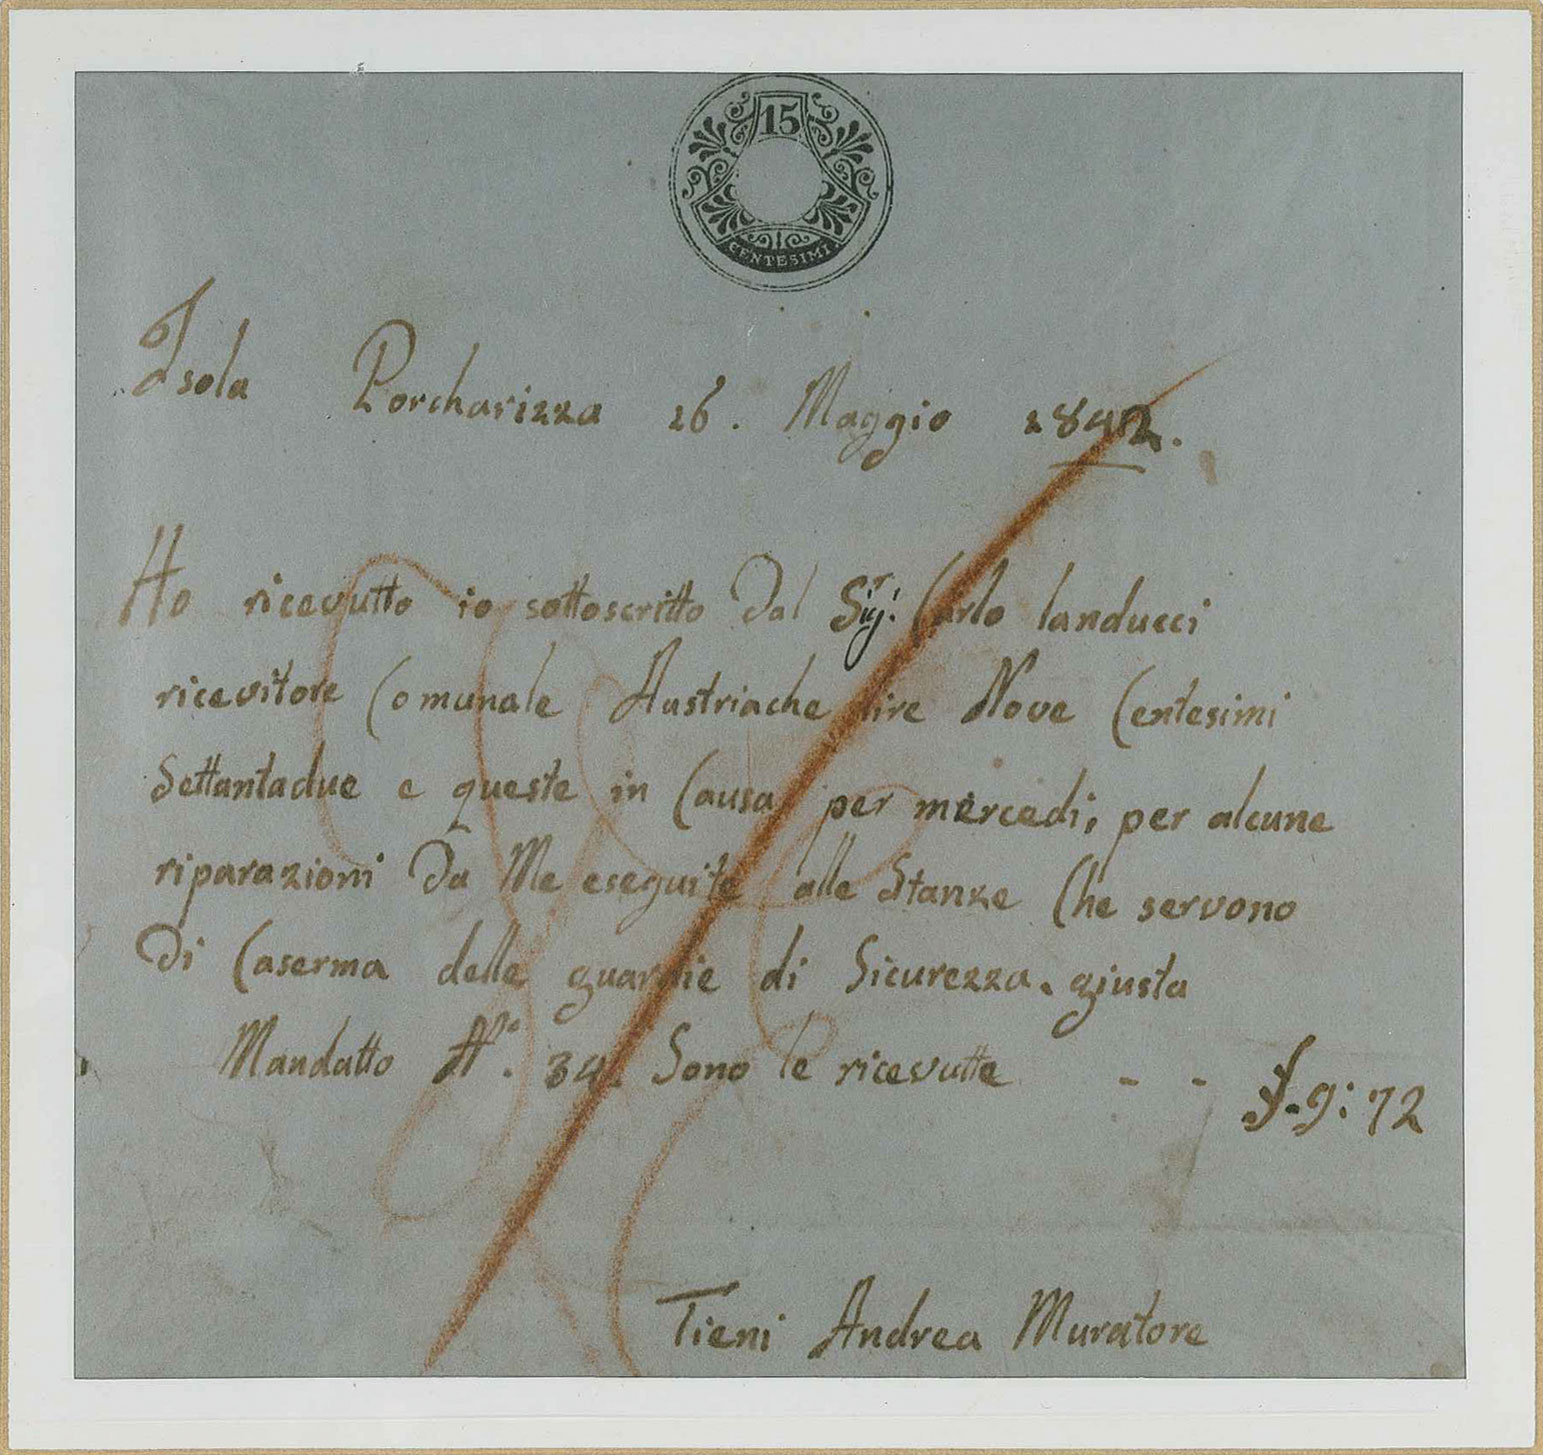 15
CENTESIMI
Isola Porcharizza 26. Maggio 1842.
Ho ricevutto io sottoscritto Dal Sigr. Carlo landucci
ricevitore Comunale Austriache lire Nove Centesimi
Settantadue e queste in Causa per mercedi, per alcune
riparazioni Da Me eseguite alle Stanze Che servono
Di Caserma delle guardie di Sicurezza. giusta
Mandatto N.° 34. Sono le ricevutte - - £. 9: 72
Tieni Andrea Muratore